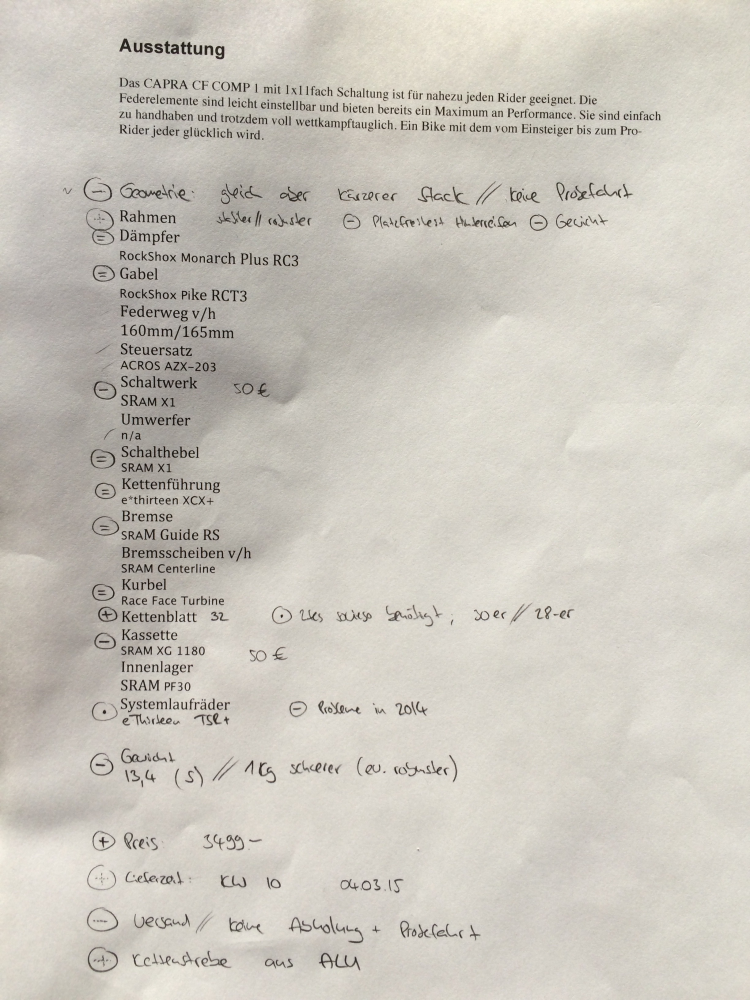 Ausstattung
Das CAPRA CF COMP 1 mit 1x11fach Schaltung ist für nahezu jeden Rider geeignet. Die
Federelemente sind leicht einstellbar und bieten bereits ein Maximum an Performance. Sie sind einfach
zu handhaben und trotzdem voll wettkampftauglich. Ein Bike mit dem vom Einsteiger bis zum Pro-
Rider jeder glücklich wird.
~ (-) Geometrie: gleich aber kürzerer Stack // keine Probefahrt
(+) Rahmen // robuster (-) Platzfreiheit Hinterreifen (-) Gewicht
(=) Dämpfer
RockShox Monarch Plus RC3
(=) Gabel
RockShox Pike RCT3
Federweg v/h
160mm/165mm
/ Steuersatz
ACROS AZX-203
(-) Schaltwerk 50 €
SRAM X1
Umwerfer
/ n/a
(=) Schalthebel
SRAM X1
(=) Kettenführung
e*thirteen XCX+
(=) Bremse
SRAM Guide RS
Bremsscheiben v/h
SRAM Centerline
(=) Kurbel
Race Face Turbine
(+) Kettenblatt 32 (·) 2tes sowieso benötigt, 30er // 28-er
(-) Kassette
SRAM XG 1180 50 €
Innenlager
SRAM PF30
(·) Systemlaufräder (-) Probleme in 2014
eThirteen TSR+
(-) Gewicht
13,4 (S) // 1 Kg schwerer (ev. robuster)
(+) Preis 3499-
(+) Lieferzeit: KW 10 04.03.15
(-) Versand // keine Abholung + Probefahrt
(+) Kettenstrebe aus ALU